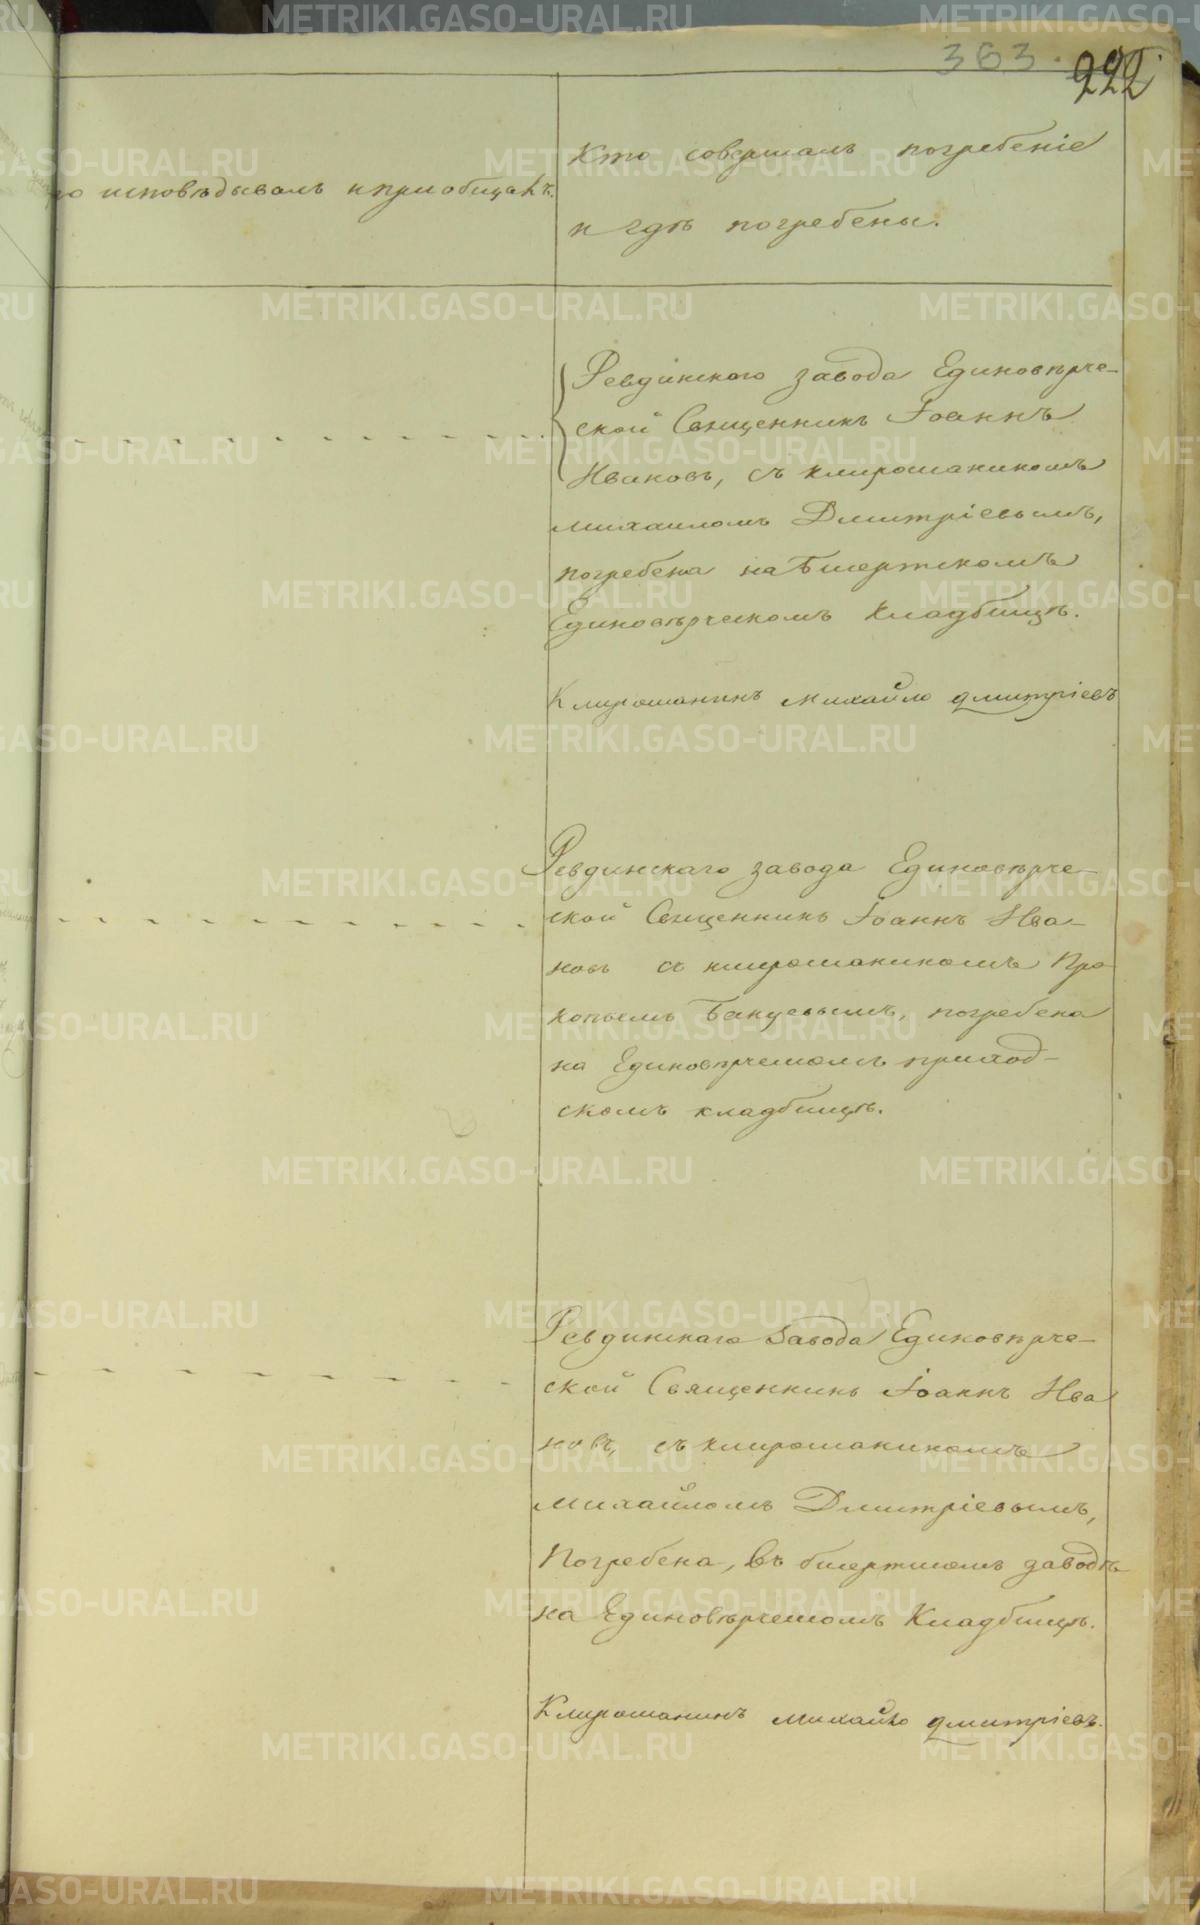 363.
222
исповѣдывалъ и приобщалъ.
Кто совершалъ погребеніе
и гдѣ погребены.
Ревдинского завода Единовѣрче-
ской Священникъ Іоаннъ
Ивановъ, съ клирошаниномъ
Михаиломъ Дмитріевымъ,
погребена на Бисертскомъ
Единовѣрческомъ кладбищѣ.
Клирошанинъ Михайло Дмитріевъ
Ревдинскаго завода Единовѣрче-
ской Священникъ Іоаннъ Ива-
новъ съ клирошаниномъ Про
копьемъ погребена
на Единовѣрческомъ приход-
скомъ кладбищѣ.
Ревдинскаго Завода Единовѣрче-
ской Священникъ Іоаннъ Ива
новъ, съ клирошаниномъ
Михайломъ Дмитріевымъ,
Погребена, въ бисертскомъ заводѣ
на Единовѣрческомъ Кладбищѣ.
Клирошанинъ Михайло Дмитріевъ.
METRIKI.GASO-URAL.RU